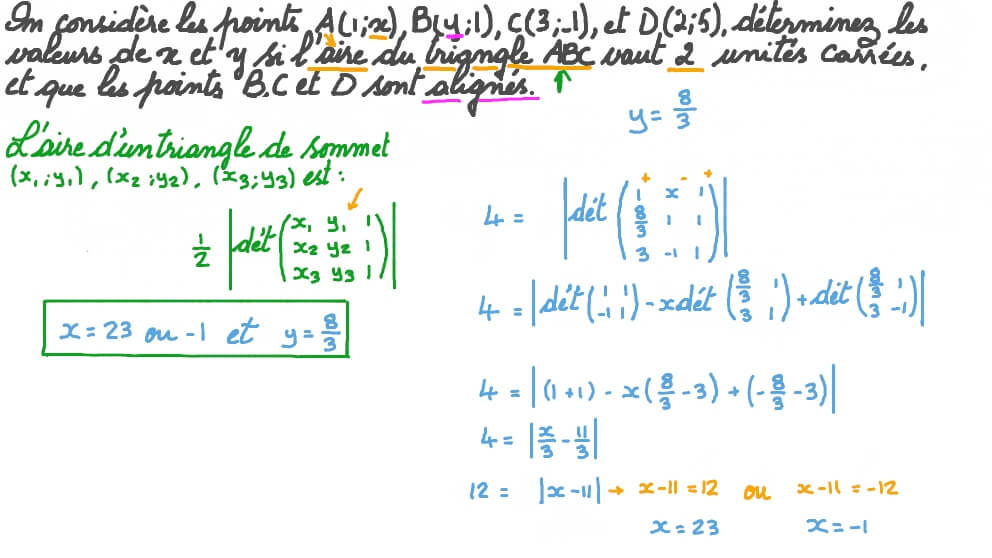 On considère les points A(1;x), B(y;1), C(3;-1), et D(2;5), déterminez les
valeurs de x et y si l'aire du triangle ABC vaut 2 unités carrées,
et que les points B,C et D sont alignés.
y = 8/3
L'aire d'un triangle de sommet
(x₁;y₁), (x₂;y₂), (x₃;y₃) est :
1/2 |dét(x₁ y₁ 1
x₂ y₂ 1
x₃ y₃ 1)|
x = 23 ou -1 et y = 8/3
+ - +
4 = |dét(1 x 1
8/3 1 1
3 -1 1)|
4 = |dét(1 1 -1 1) - x dét(8/3 1 3 1) + dét(8/3 1 3 -1)|
4 = |(1+1) - x(8/3 - 3) + (-8/3 - 3)|
4 = |x/3 - 11/3|
12 = |x-11| → x-11 = 12 ou x-11 = -12
x = 23 x = -1